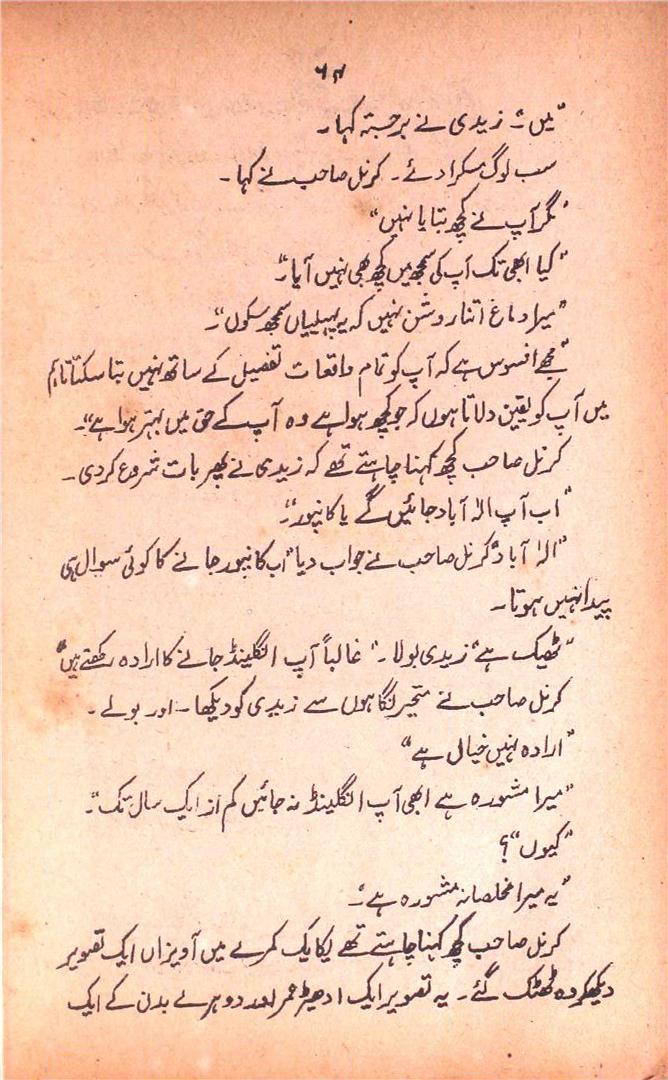 ۶۴
"میں"۔ زیدی نے برجستہ کہا۔
سب لوگ مسکرا دئے۔ کرنل صاحب نے کہا۔
"مگر آپ نے کچھ بتایا نہیں"
"کیا ابھی تک آپ کی سمجھ میں کچھ بھی نہیں آیا"۔
"میرا دماغ اتنا روشن نہیں کہ یہ پہیلیاں سمجھ سکوں"۔
"مجھے افسوس ہے کہ آپ کو تمام واقعات تفصیل کے ساتھ نہیں بتا سکتا تاہم
میں آپ کو یقین دلاتا ہوں کہ جو کچھ ہوا ہے وہ آپ کے حق میں بہتر ہوا ہے"۔
کرنل صاحب کچھ کہنا چاہتے تھے کہ زیدی نے پھر بات شروع کر دی۔
"اب آپ الہ آباد جائیں گے یا کانپور"۔
"الہ آباد" کرنل صاحب نے جواب دیا "اب کانپور جانے کا کوئی سوال ہی
پیدا نہیں ہوتا۔
"ٹھیک ہے" زیدی بولا۔ "غالباً آپ انگلینڈ جانے کا ارادہ رکھتے ہیں"
کرنل صاحب نے متحیر نگاہوں سے زیدی کو دیکھا۔ اور بولے۔
"ارادہ نہیں خیال ہے"
"میرا مشورہ ہے ابھی آپ انگلینڈ نہ جائیں کم از ایک سال تک"۔
"کیوں"؟
"یہ میرا مخلصانہ مشورہ ہے"۔
کرنل صاحب کچھ کہنا چاہتے تھے یکایک کمرے میں آویزاں ایک تصویر
دیکھ کر وہ ٹھٹک گئے۔ یہ تصویر ایک ادھیڑ عمر اور دوہرے بدن کے ایک